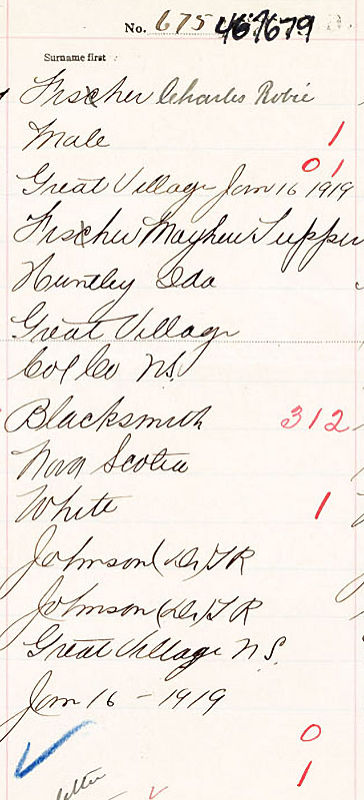 No. 675 467679
Surname first
Fischer Charles Robie
Male 1
0 1
Great Village Jan 16 1919
Fischer Mayhew Tupper
Huntley Ida
Great Village
Col Co N.S.
Blacksmith 312
Nova Scotia
White 1
Johnson (Dr) T R
Johnson (Dr) T R
Great Village N.S.
Jan 16 - 1919
0
1
letter